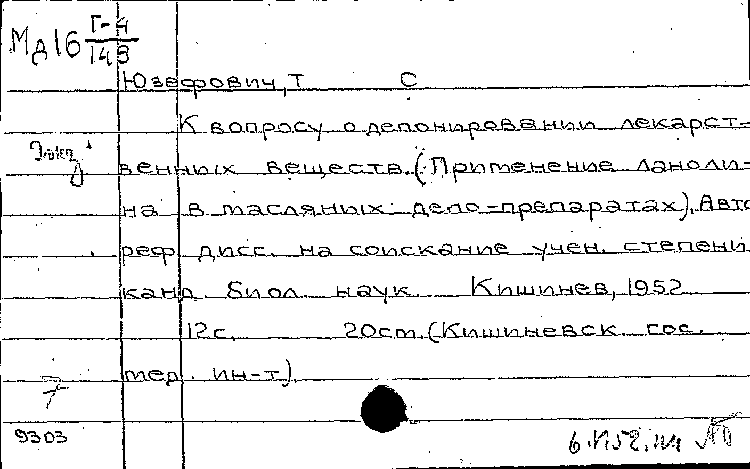 Мд16 Г-4/148
Юзефович, Т С
К вопросу о депонировании лекарст-
венных веществ. (Применение ланоли-
на в масляных депо-препаратах). Авто
реф дисс. на соискание учен. степени
канд. биол. наук. Кишинев, 1952
12с. 20cm. (Кишиневск. гос.
мед. ин-т).
9303